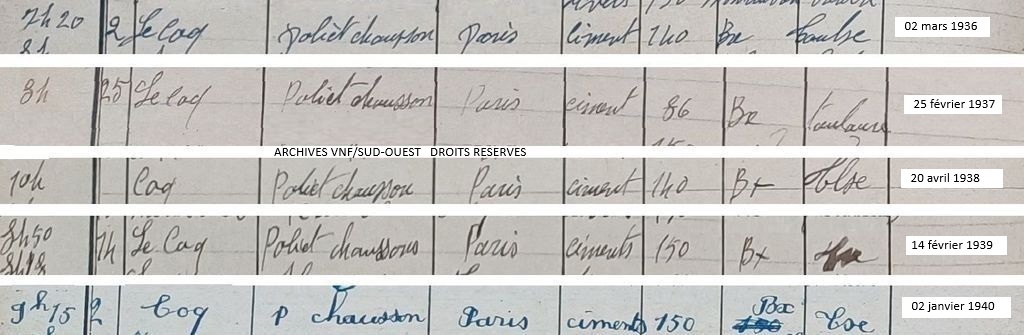 7h20 2 Le Coq poliet chausson Paris ciment 140 Bx Toulse 02 mars 1936
8h 25 Le coq Poliet chausson Paris ciment 86 Bx Toulouse 25 février 1937
ARCHIVES VNF/SUD-OUEST DROITS RESERVES
10h Coq Poliet chausson Paris ciment 140 Bx Tlse 20 avril 1938
8h50 14 Le Coq Poliet chaussons Paris ciments 150 Bx 14 février 1939
9h15 2 Coq P chausson Paris ciments 150 Bx Tse 02 janvier 1940